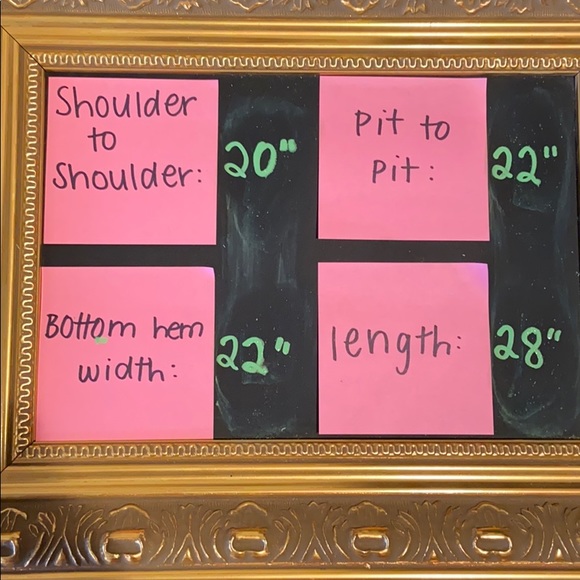 Shoulder
to
Shoulder: 20"
Pit to
Pit: 22"
Bottom hem
width: 22"
length: 28"